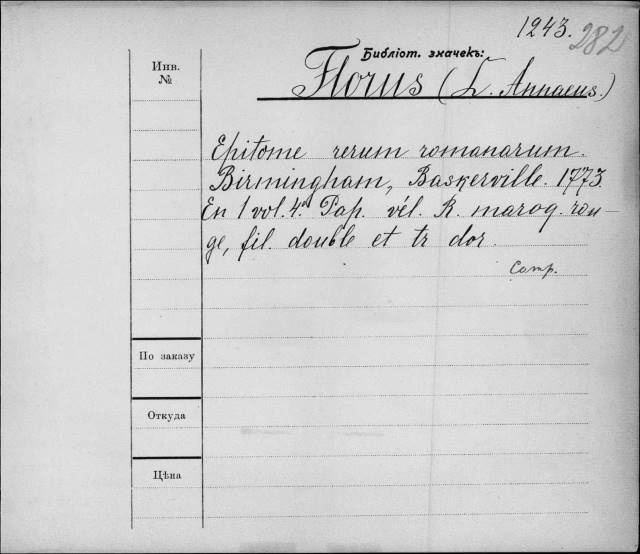 1243.
282
Библіот. значекъ:
Инв.
№
Florus (L. Annaeus.)
Epitome rerum romanarum.
Birmingham, Baskerville. 1773.
En 1 vol. 4º Pap. vél. R. maroq. rou-
ge, fil. double et tr dor.
Camp.
По заказу
Откуда
Цѣна